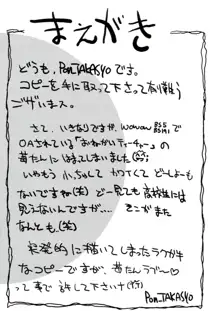 まえがき
どうも、Pon_TAKASYOです。
コピーを手に取って下さって有り難う
ございます。
さて、いきなりですが、wowowで
OAされている「おねがいティーチャー」の
苺たんにはまってしまいました(笑)
いやもう ちっちゃくて カワイくて どーしよーも
ないですね(笑) どー見ても高校生には
見えないんですが…… そこがまた
なんとも。(笑)
突発的に描いてしまったラクガキ
なコピーですが、苺たんラヴ〜♡
って事で許して下さい(汗)
Pon_TAKASYO